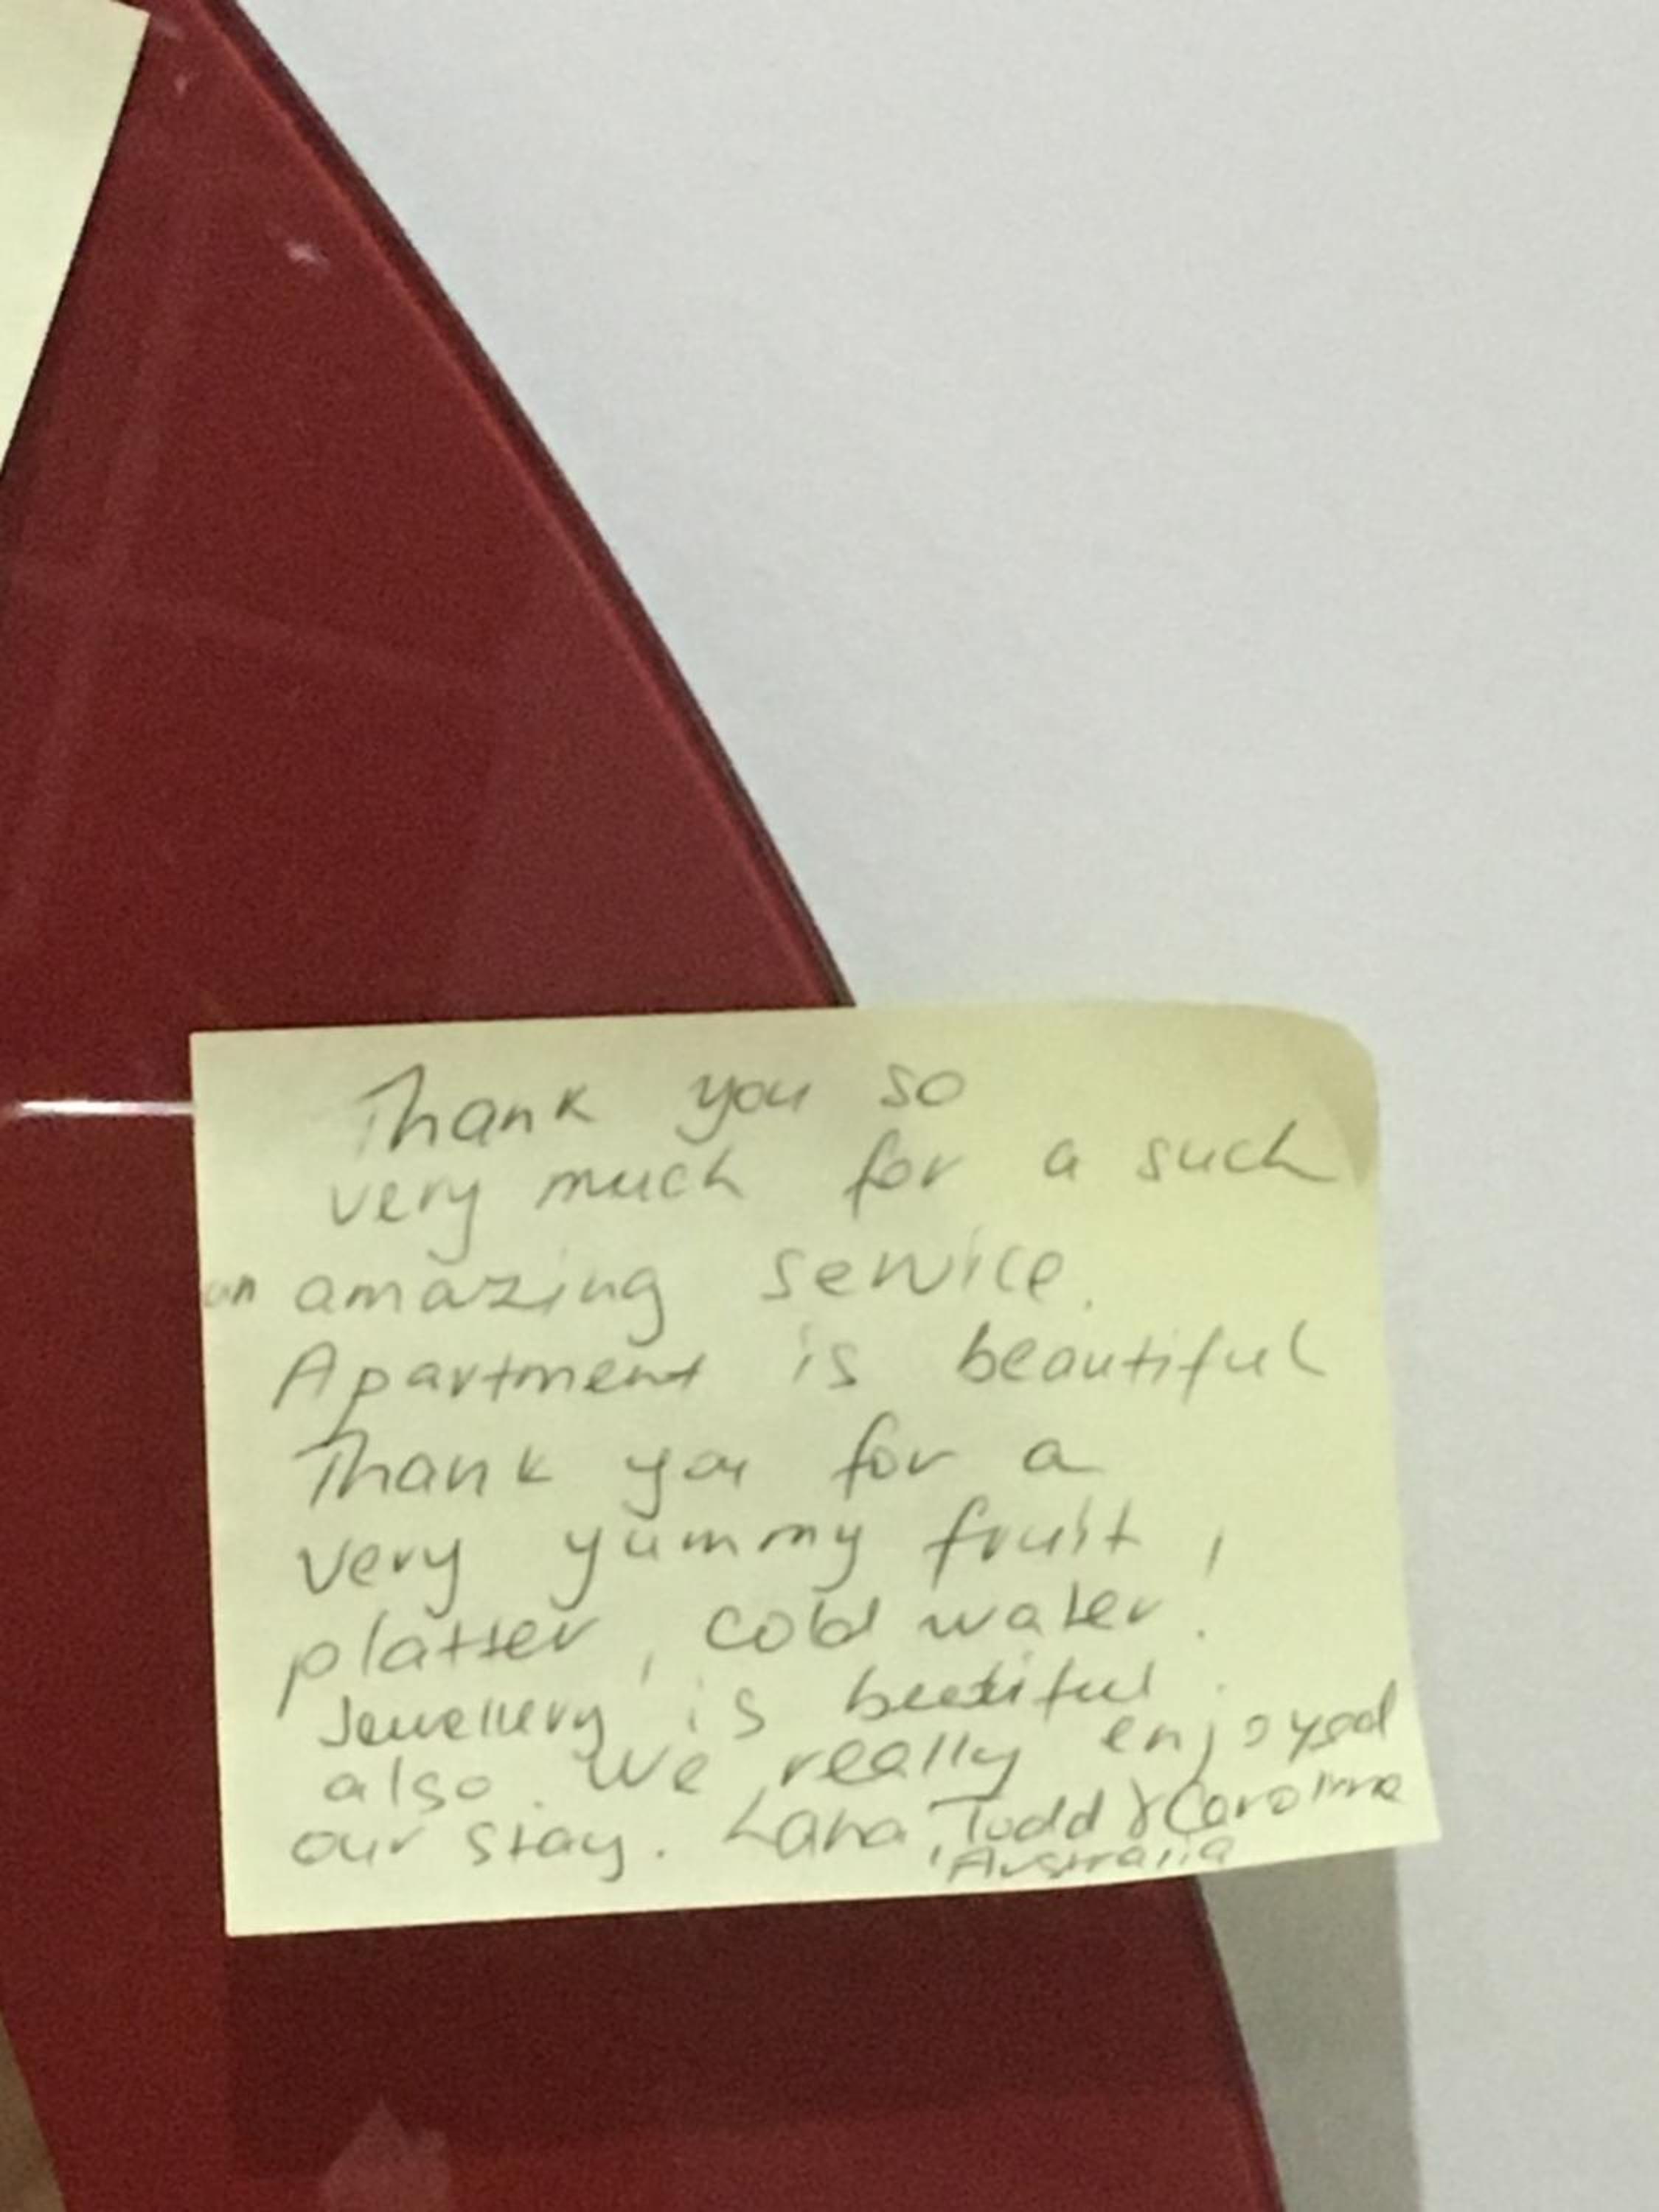 Thank you so
very much for a such
an amazing service.
Apartment is beautiful
Thank you for a
very yummy fruit,
platter, cold water.
Jewellery is beatiful.
also. We really enjoyed
our stay. Lana, Todd & Caroline
Australia